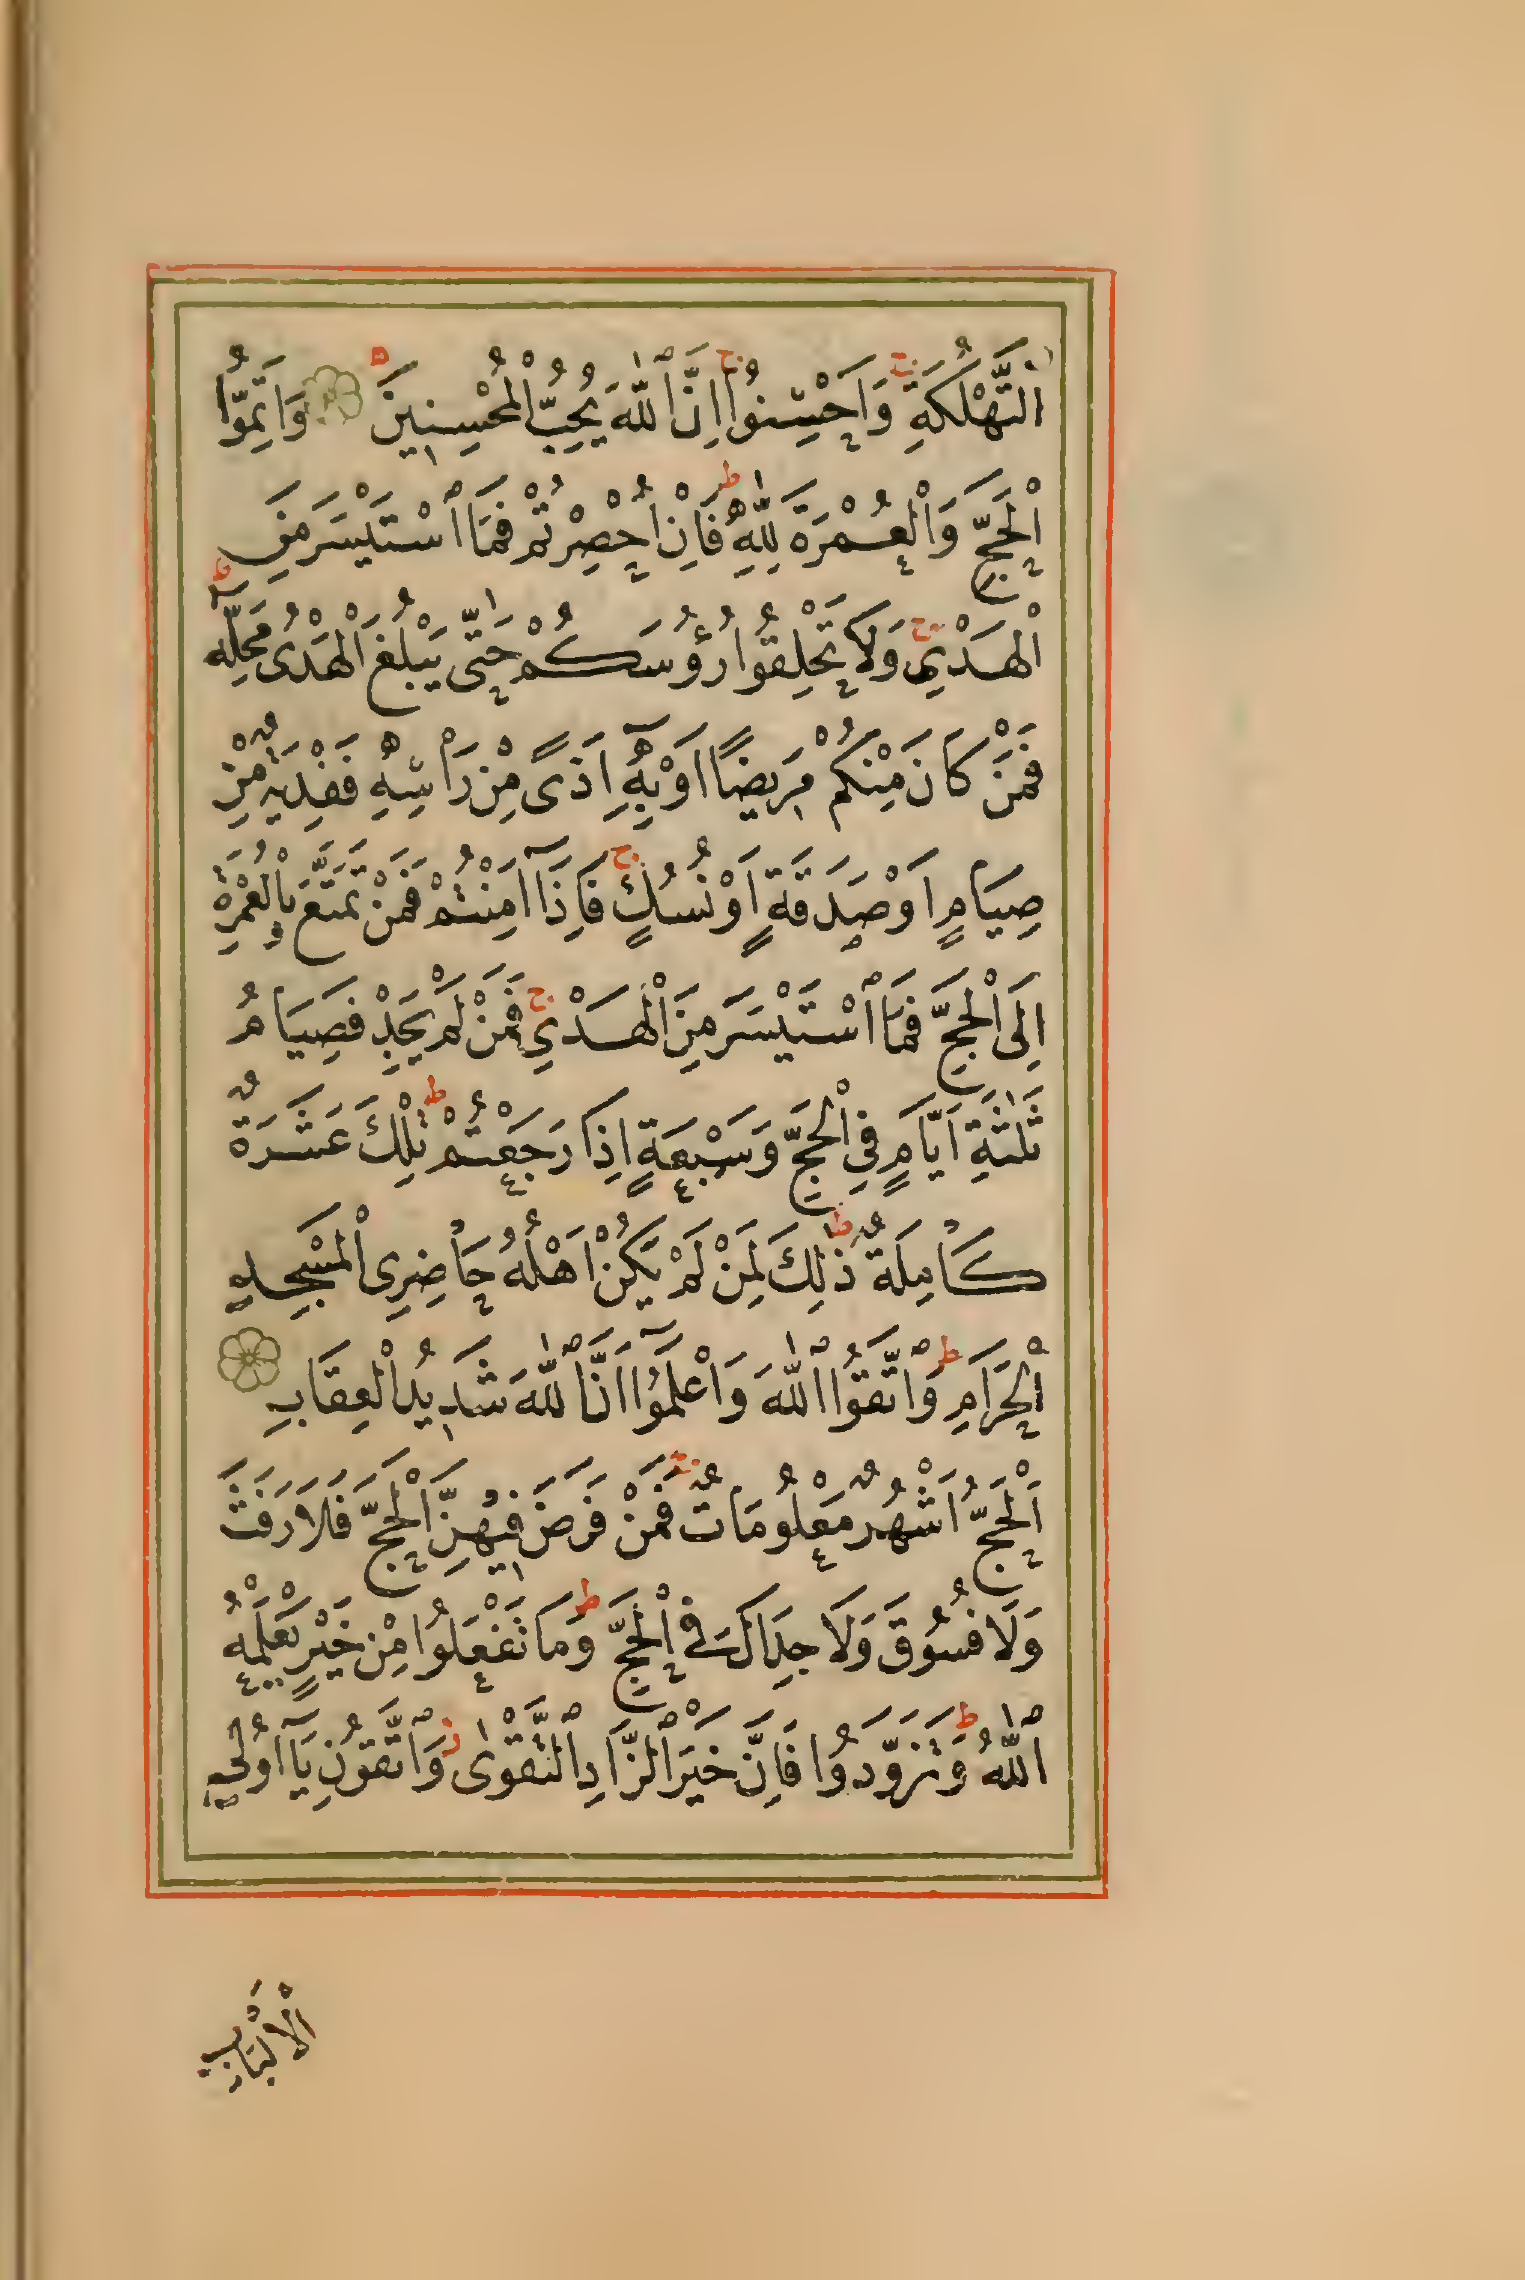 التَّهْلُكَةِ وَاَحْسِنُوا اِنَّ اللّٰهَ يُحِبُّ الْمُحْسِنِينَ وَاَتِمُّوا
الْحَجَّ وَالْعُمْرَةَ لِلّٰهِ فَاِنْ اُحْصِرْتُمْ فَمَا اسْتَيْسَرَ مِنَ
الْهَدْيِ وَلَا تَحْلِقُوا رُؤُسَكُمْ حَتّٰى يَبْلُغَ الْهَدْىُ مَحِلَّهُ
فَمَنْ كَانَ مِنْكُمْ مَرِيضًا اَوْ بِهِٓ اَذًى مِنْ رَاْسِهِ فَفِدْيَةٌ مِنْ
صِيَامٍ اَوْ صَدَقَةٍ اَوْ نُسُكٍ فَاِذَٓا اَمِنْتُمْ فَمَنْ تَمَتَّعَ بِالْعُمْرَةِ
اِلَى الْحَجِّ فَمَا اسْتَيْسَرَ مِنَ الْهَدْيِ فَمَنْ لَمْ يَجِدْ فَصِيَامُ
ثَلٰثَةِ اَيَّامٍ فِي الْحَجِّ وَسَبْعَةٍ اِذَا رَجَعْتُمْ تِلْكَ عَشَرَةٌ
كَامِلَةٌ ذٰلِكَ لِمَنْ لَمْ يَكُنْ اَهْلُهُ حَاضِرِى الْمَسْجِدِ
الْحَرَامِ وَاتَّقُوا اللّٰهَ وَاعْلَمُٓوا اَنَّ اللّٰهَ شَدِيدُ الْعِقَابِ
اَلْحَجُّ اَشْهُرٌ مَعْلُومَاتٌ فَمَنْ فَرَضَ فِيهِنَّ الْحَجَّ فَلَا رَفَثَ
وَلَا فُسُوقَ وَلَا جِدَالَ فِي الْحَجِّ وَمَا تَفْعَلُوا مِنْ خَيْرٍ يَعْلَمْهُ
اللّٰهُ وَتَزَوَّدُوا فَاِنَّ خَيْرَ الزَّادِ التَّقْوٰى وَاتَّقُونِ يَٓا اُولِي
الْاَلْبَابِ